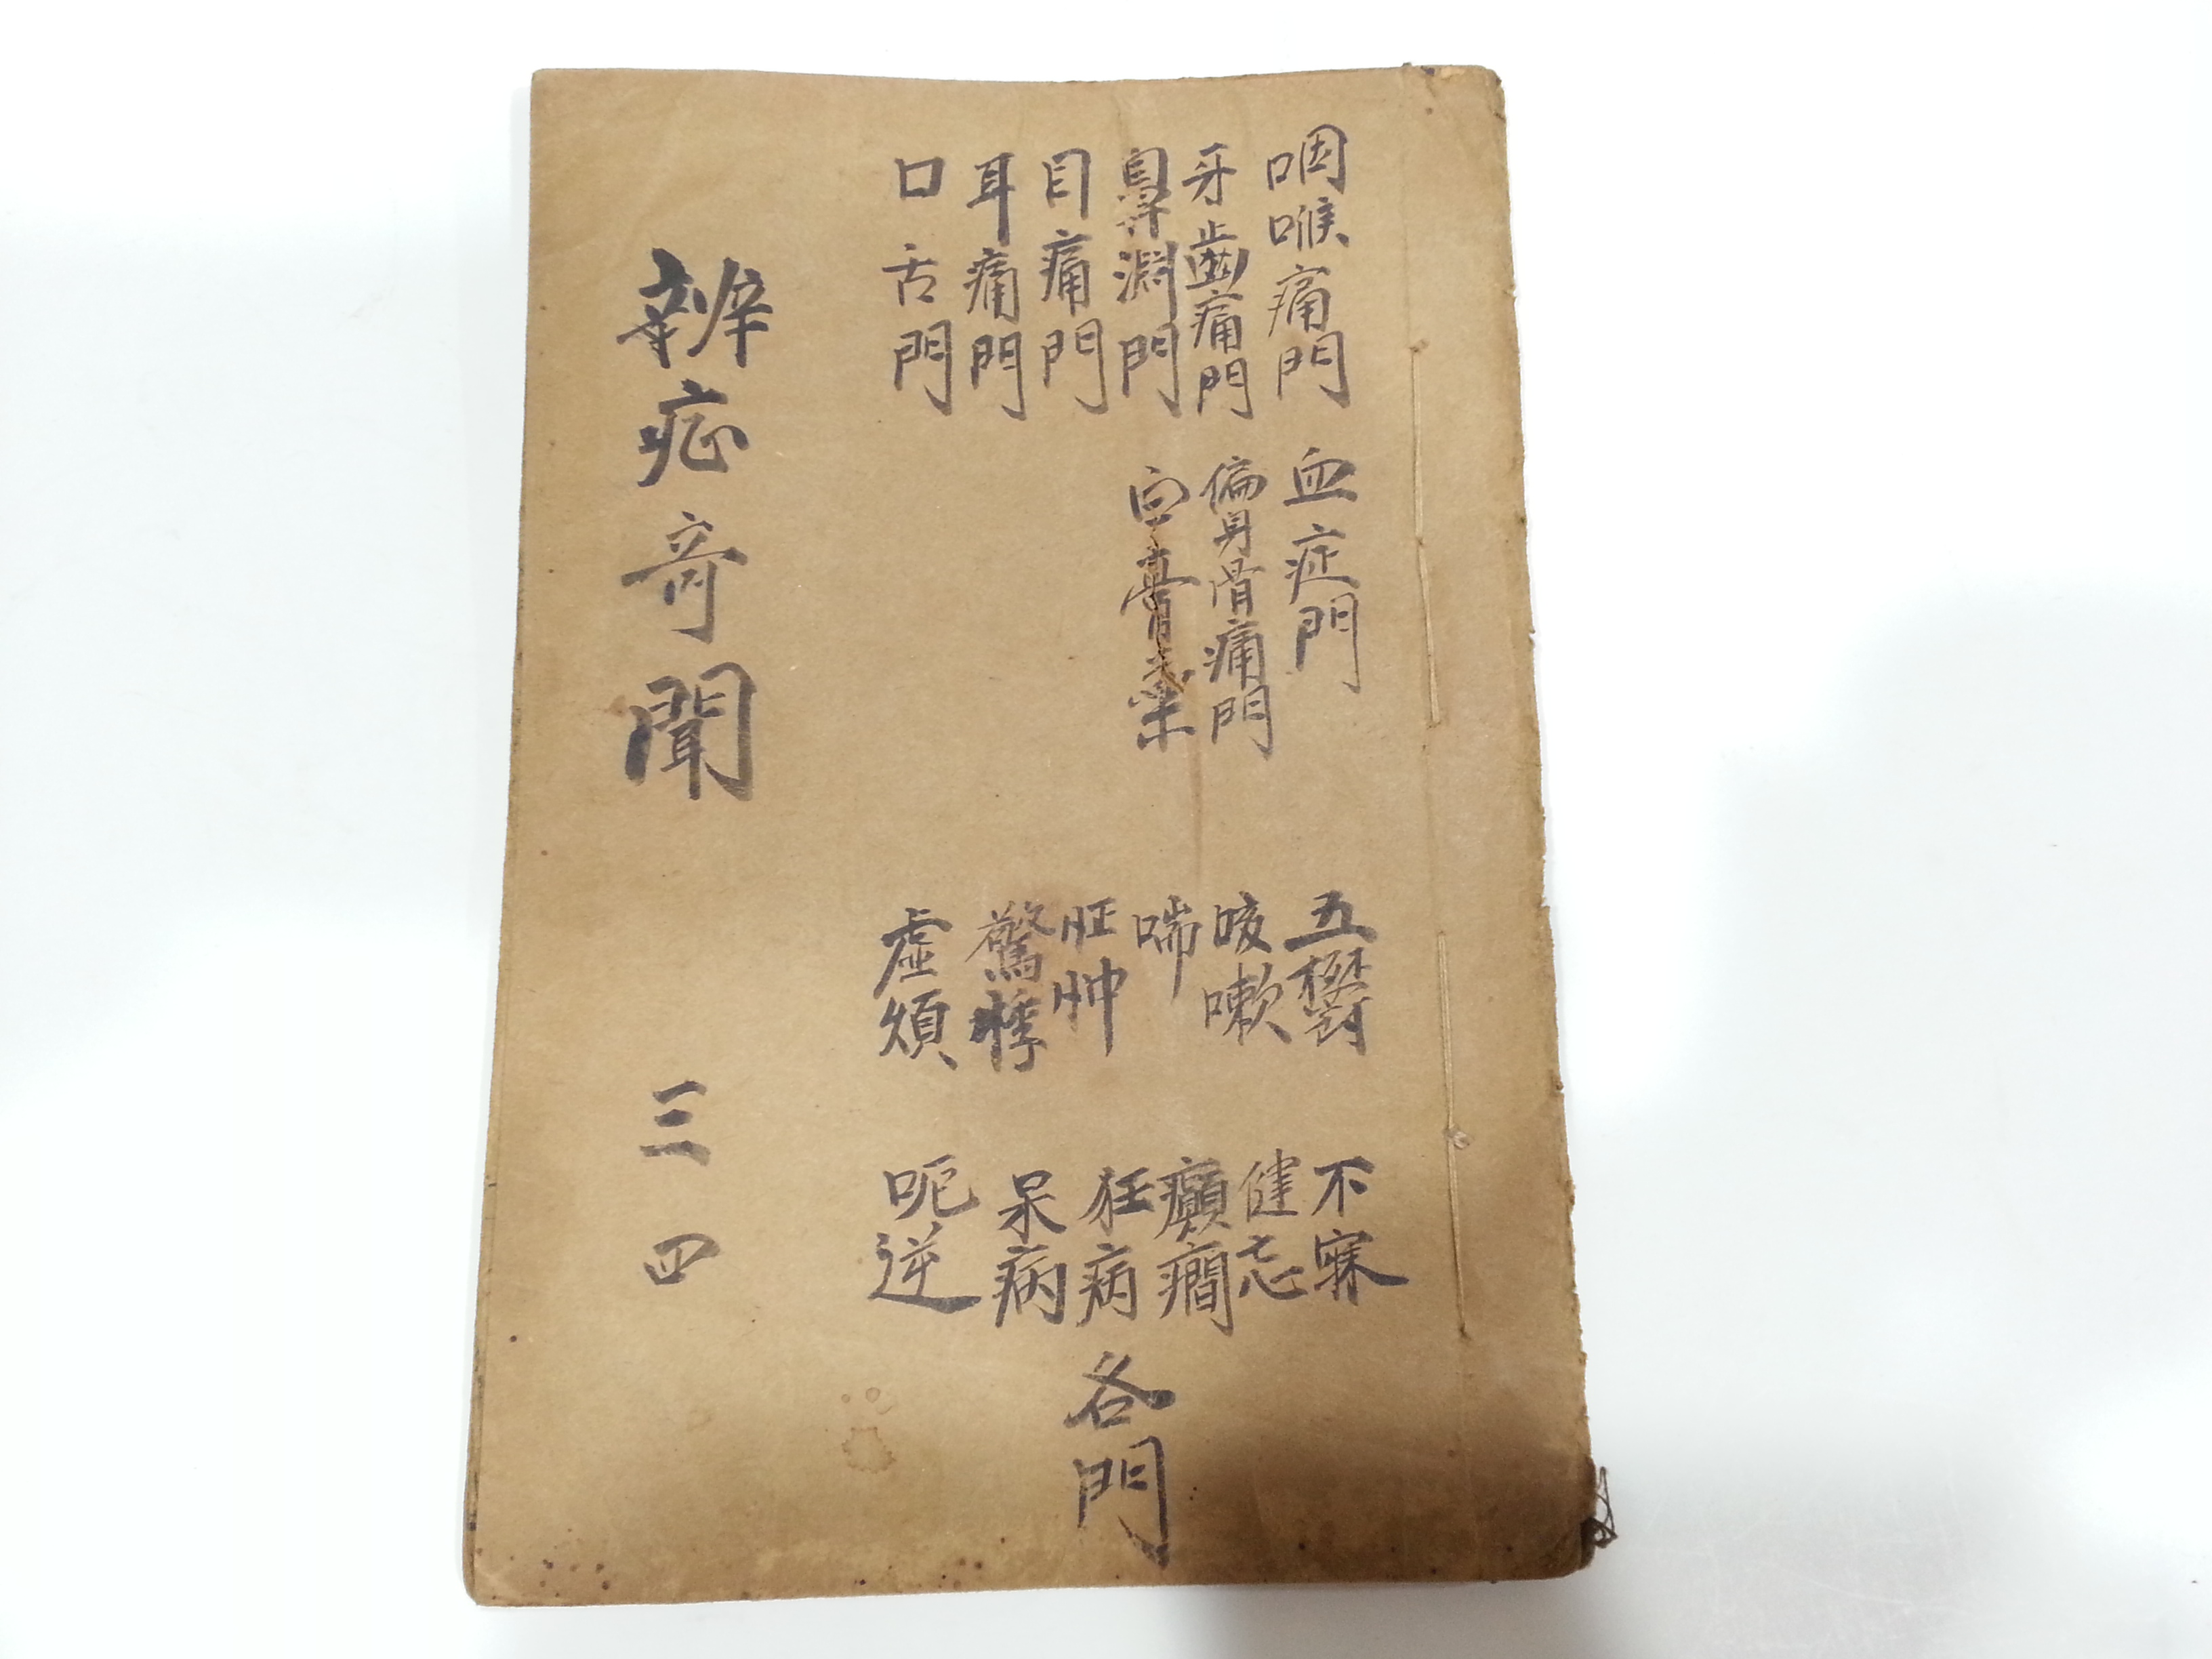 咽喉痛門
牙齒痛門
鼻淵門
目痛門
耳痛門
口舌門
血症門
偏身骨痛門
膏
五鬱
咳嗽
喘
怔忡
驚悸
虛煩
不寐
健忘
癲癇
狂病
呆病
呃逆
各門
辨症奇聞 三四